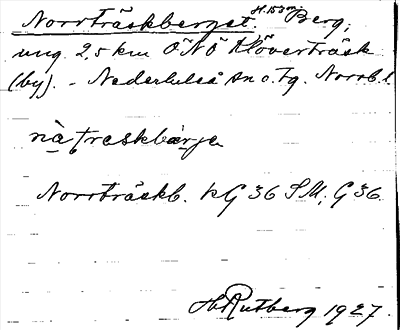 Norrträskberget. H.153 m. Berg,
ung 2,5 km ÖNÖ Klöverträsk
(by). - Nederluleå sn o. tg. Norrb. l.
nà træskbærje
Norrträskb. kG 36 SM, G 36.
H Rutberg 1927.